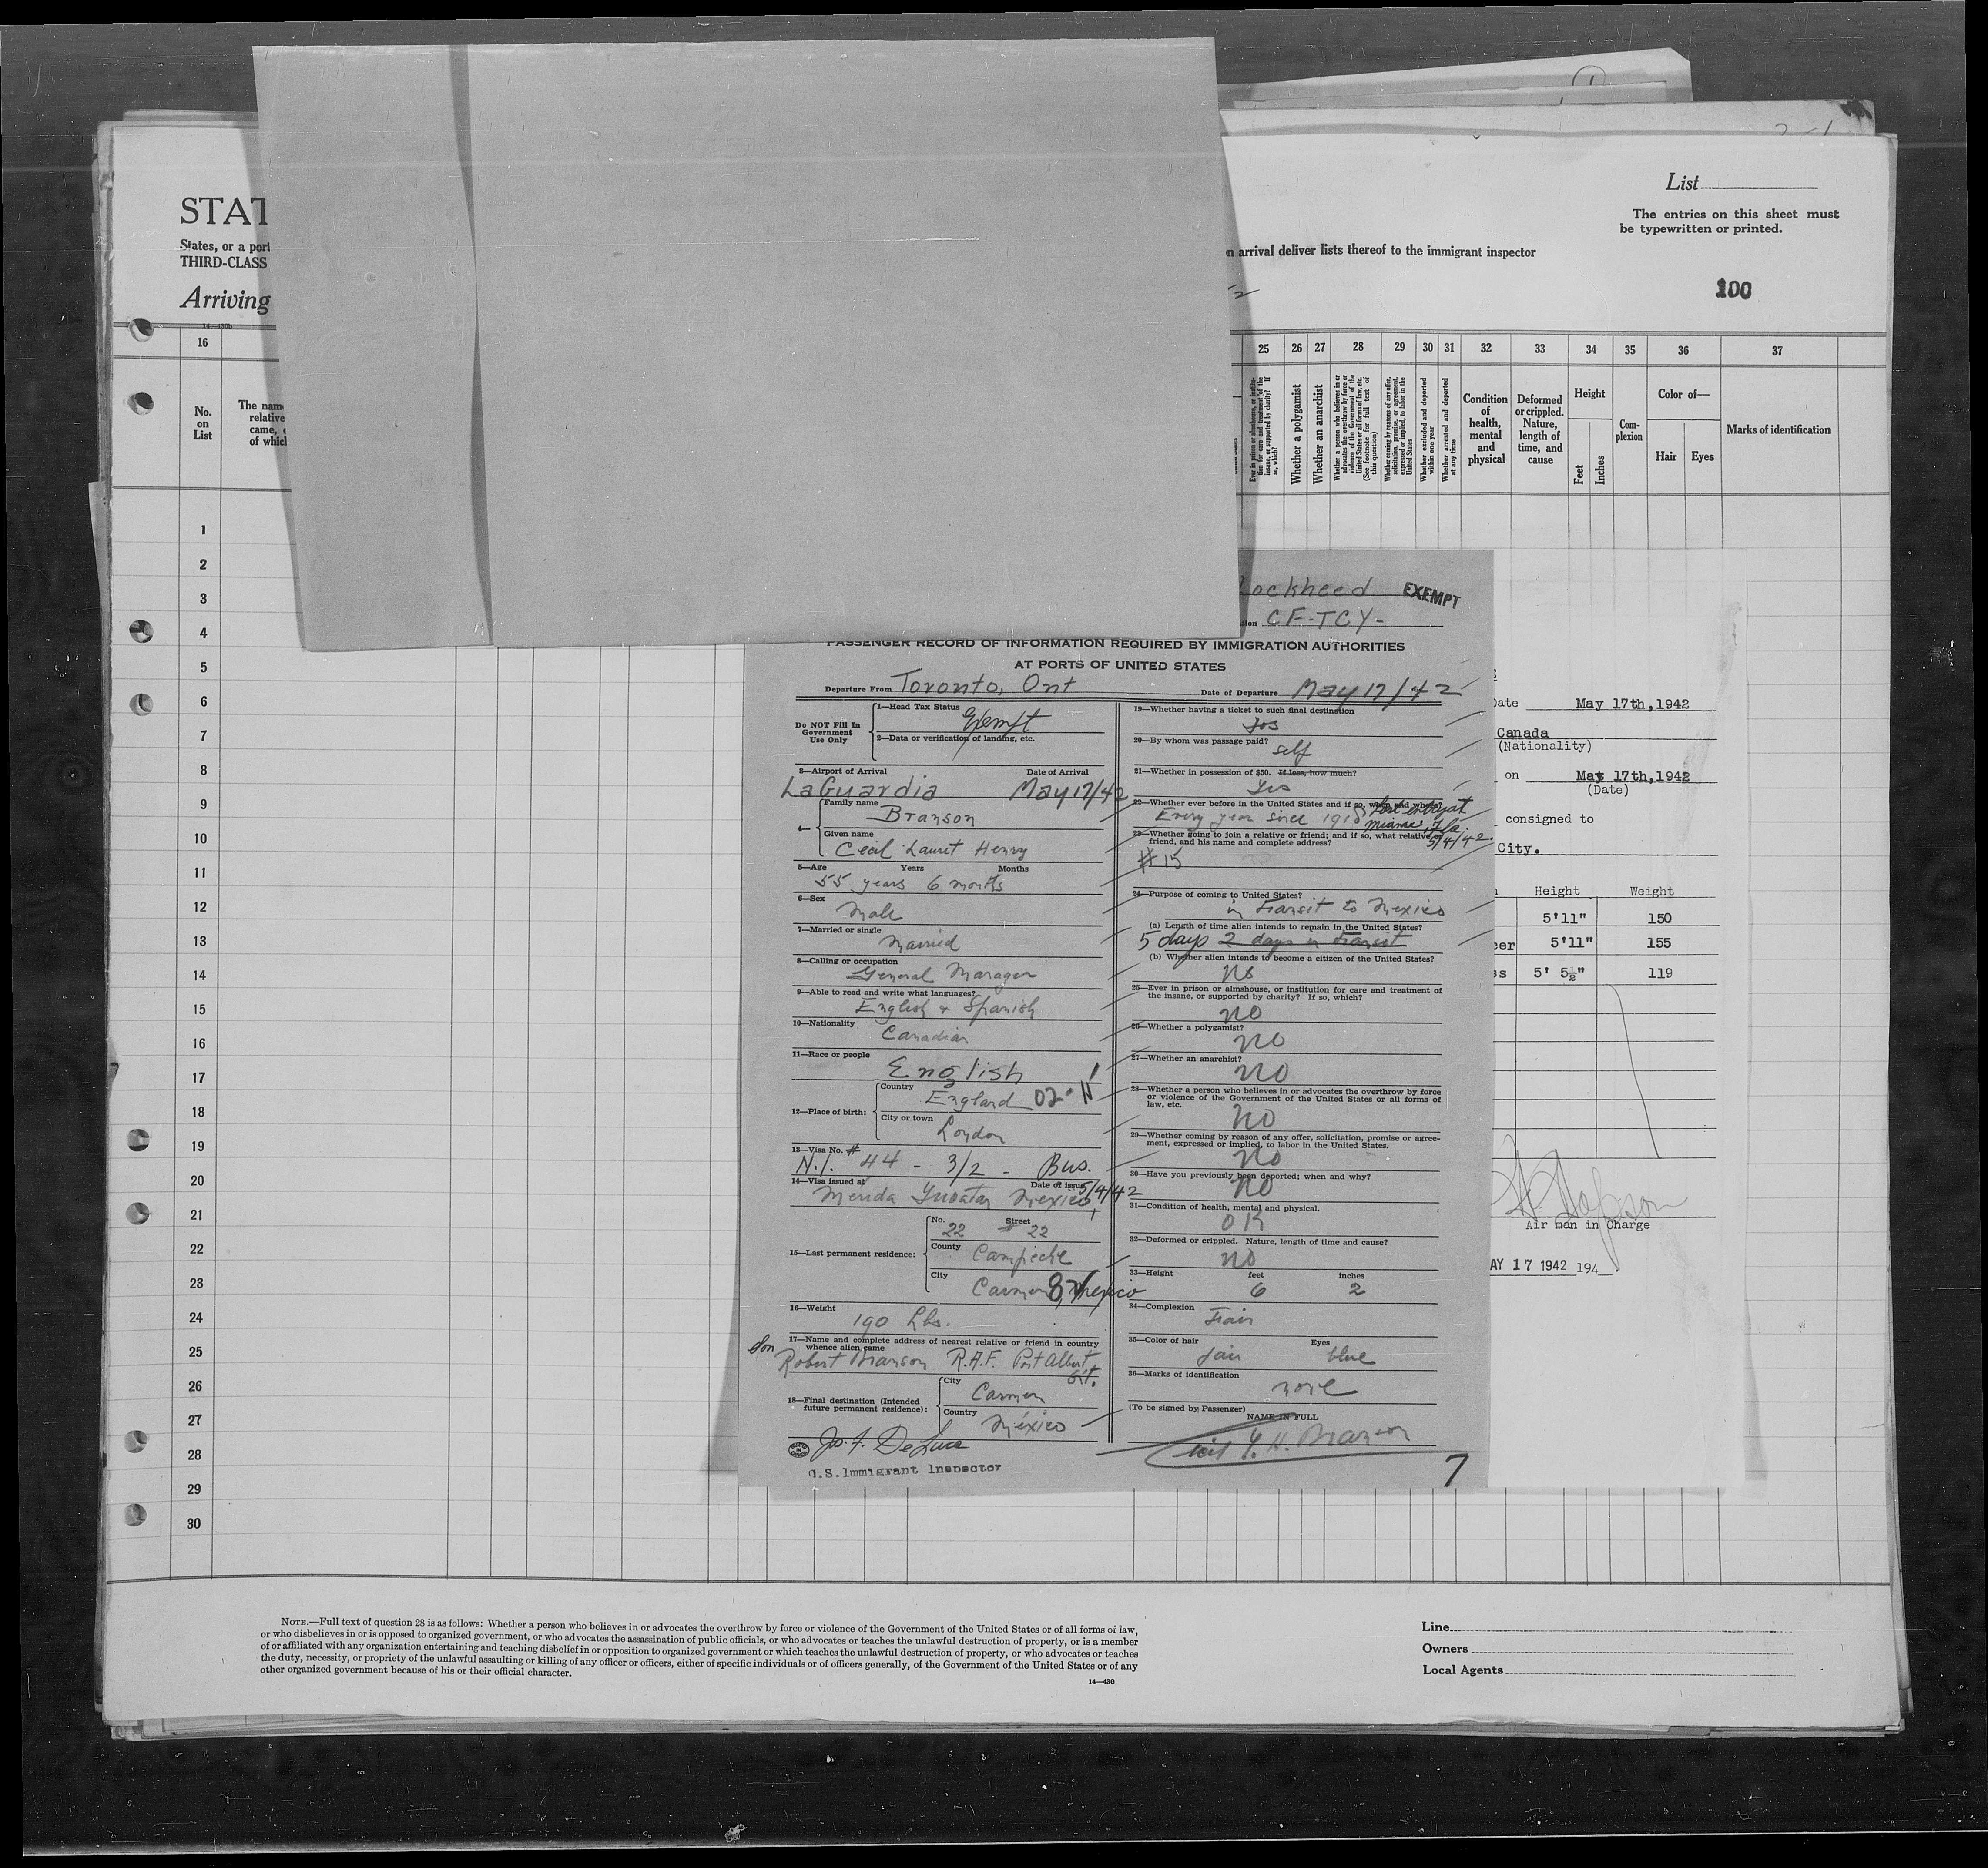 List
The entries on this sheet must
be typewritten or printed.
STAT
States, or a port
THIRD-CLASS
arrival deliver lists thereof to the immigrant inspector
Arriving
100
16 25 26 27 28 29 30 31 32 33 34 35 36 37
No.
on
List
The name
relative
came,
of which
Whether a polygamist
Whether an anarchist
Whether a person who believes in or
advocates the overthrow by force or
violence of the Government of the
United States or all forms of law, etc.
(See footnote for full text of
this question)
Whether coming by reasons of any offer,
solicitation, promise, or agreement,
expressed or implied, to labor in the
United States
Whether excluded and deported
within one year
Whether arrested and deported
at any time
Condition
of
health,
mental
and
physical
Deformed
or crippled.
Nature,
length of
time, and
cause
Height
Feet
Inches
Com-
plexion
Color of—
Hair Eyes
Marks of identification
1
2
3
4
5
6
7
8
9
10
11
12
13
14
15
16
17
18
19
20
21
22
23
24
25
26
27
28
29
30
Lockheed EXEMPT
CF-TCY-
PASSENGER RECORD OF INFORMATION REQUIRED BY IMMIGRATION AUTHORITIES
AT PORTS OF UNITED STATES
Departure From Toronto, Ont Date of Departure May 17/42
Do NOT Fill In
Government
Use Only
1—Head Tax Status Exempt
2—Data or verification of landing, etc.
3—Airport of Arrival Date of Arrival
LaGuardia May 17/42
4—
Family name
Branson
Given name
Cecil Lauret Henry
5—Age Years Months
55 years 6 months
6—Sex
Male
7—Married or single
Married
8—Calling or occupation
General Manager
9—Able to read and write what languages?
English & Spanish
10—Nationality
Canadian
11—Race or people
English
12—Place of birth:
Country
England
City or town
London
13—Visa No. #
N.I. 44 - 3/2 - Bus.
14—Visa issued at Date of issue
Merida Yucatan Mexico 5/4/42
15—Last permanent residence:
No. Street
22 # 22
County Campeche
City Carmen Mexico
16—Weight
190 Lbs.
17—Name and complete address of nearest relative or friend in country
whence alien came
Son
Robert Branson R.A.F. Port Albert
Ont.
18—Final destination (Intended
future permanent residence):
City
Carmen
Country
México
Jo. F. DeLuca
U.S. Immigrant Inspector
19—Whether having a ticket to such final destination
Yes
20—By whom was passage paid?
self
21—Whether in possession of $50. If less, how much?
Yes
22—Whether ever before in the United States and if so, when and where?
Every year since 1918 last entry at
Miami, Fla.
5/4/42.
23—Whether going to join a relative or friend; and if so, what relative or
friend, and his name and complete address?
#15
24—Purpose of coming to United States?
in Transit to Mexico
(a) Length of time alien intends to remain in the United States?
5 days 2 days in transit
(b) Whether alien intends to become a citizen of the United States?
No
25—Ever in prison or almshouse, or institution for care and treatment of
the insane, or supported by charity? If so, which?
no
26—Whether a polygamist?
no
27—Whether an anarchist?
no
28—Whether a person who believes in or advocates the overthrow by force
or violence of the Government of the United States or all forms of
law, etc.
no
29—Whether coming by reason of any offer, solicitation, promise or agree-
ment, expressed or implied, to labor in the United States.
no
30—Have you previously been deported; when and why?
no
31—Condition of health, mental and physical.
OK
32—Deformed or crippled. Nature, length of time and cause?
no
33—Height feet inches
6 2
34—Complexion
Fair
35—Color of hair Eyes
fair blue
36—Marks of identification
none
(To be signed by Passenger)
NAME IN FULL
Cecil L. H. Branson
7
Date May 17th,1942
Canada
(Nationality)
on May 17th,1942
(Date)
consigned to
City.
Height Weight
5'11" 150
5'11" 155
5' 5½" 119
Air man in Charge
MAY 17 1942 194
NOTE.—Full text of question 28 is as follows: Whether a person who believes in or advocates the overthrow by force or violence of the Government of the United States or of all forms of law,
or who disbelieves in or is opposed to organized government, or who advocates the assassination of public officials, or who advocates or teaches the unlawful destruction of property, or is a member
of or affiliated with any organization entertaining and teaching disbelief in or opposition to organized government or which teaches the unlawful destruction of property, or who advocates or teaches
the duty, necessity, or propriety of the unlawful assaulting or killing of any officer or officers, either of specific individuals or of officers generally, of the Government of the United States or of any
other organized government because of his or their official character.
14—430
Line
Owners
Local Agents